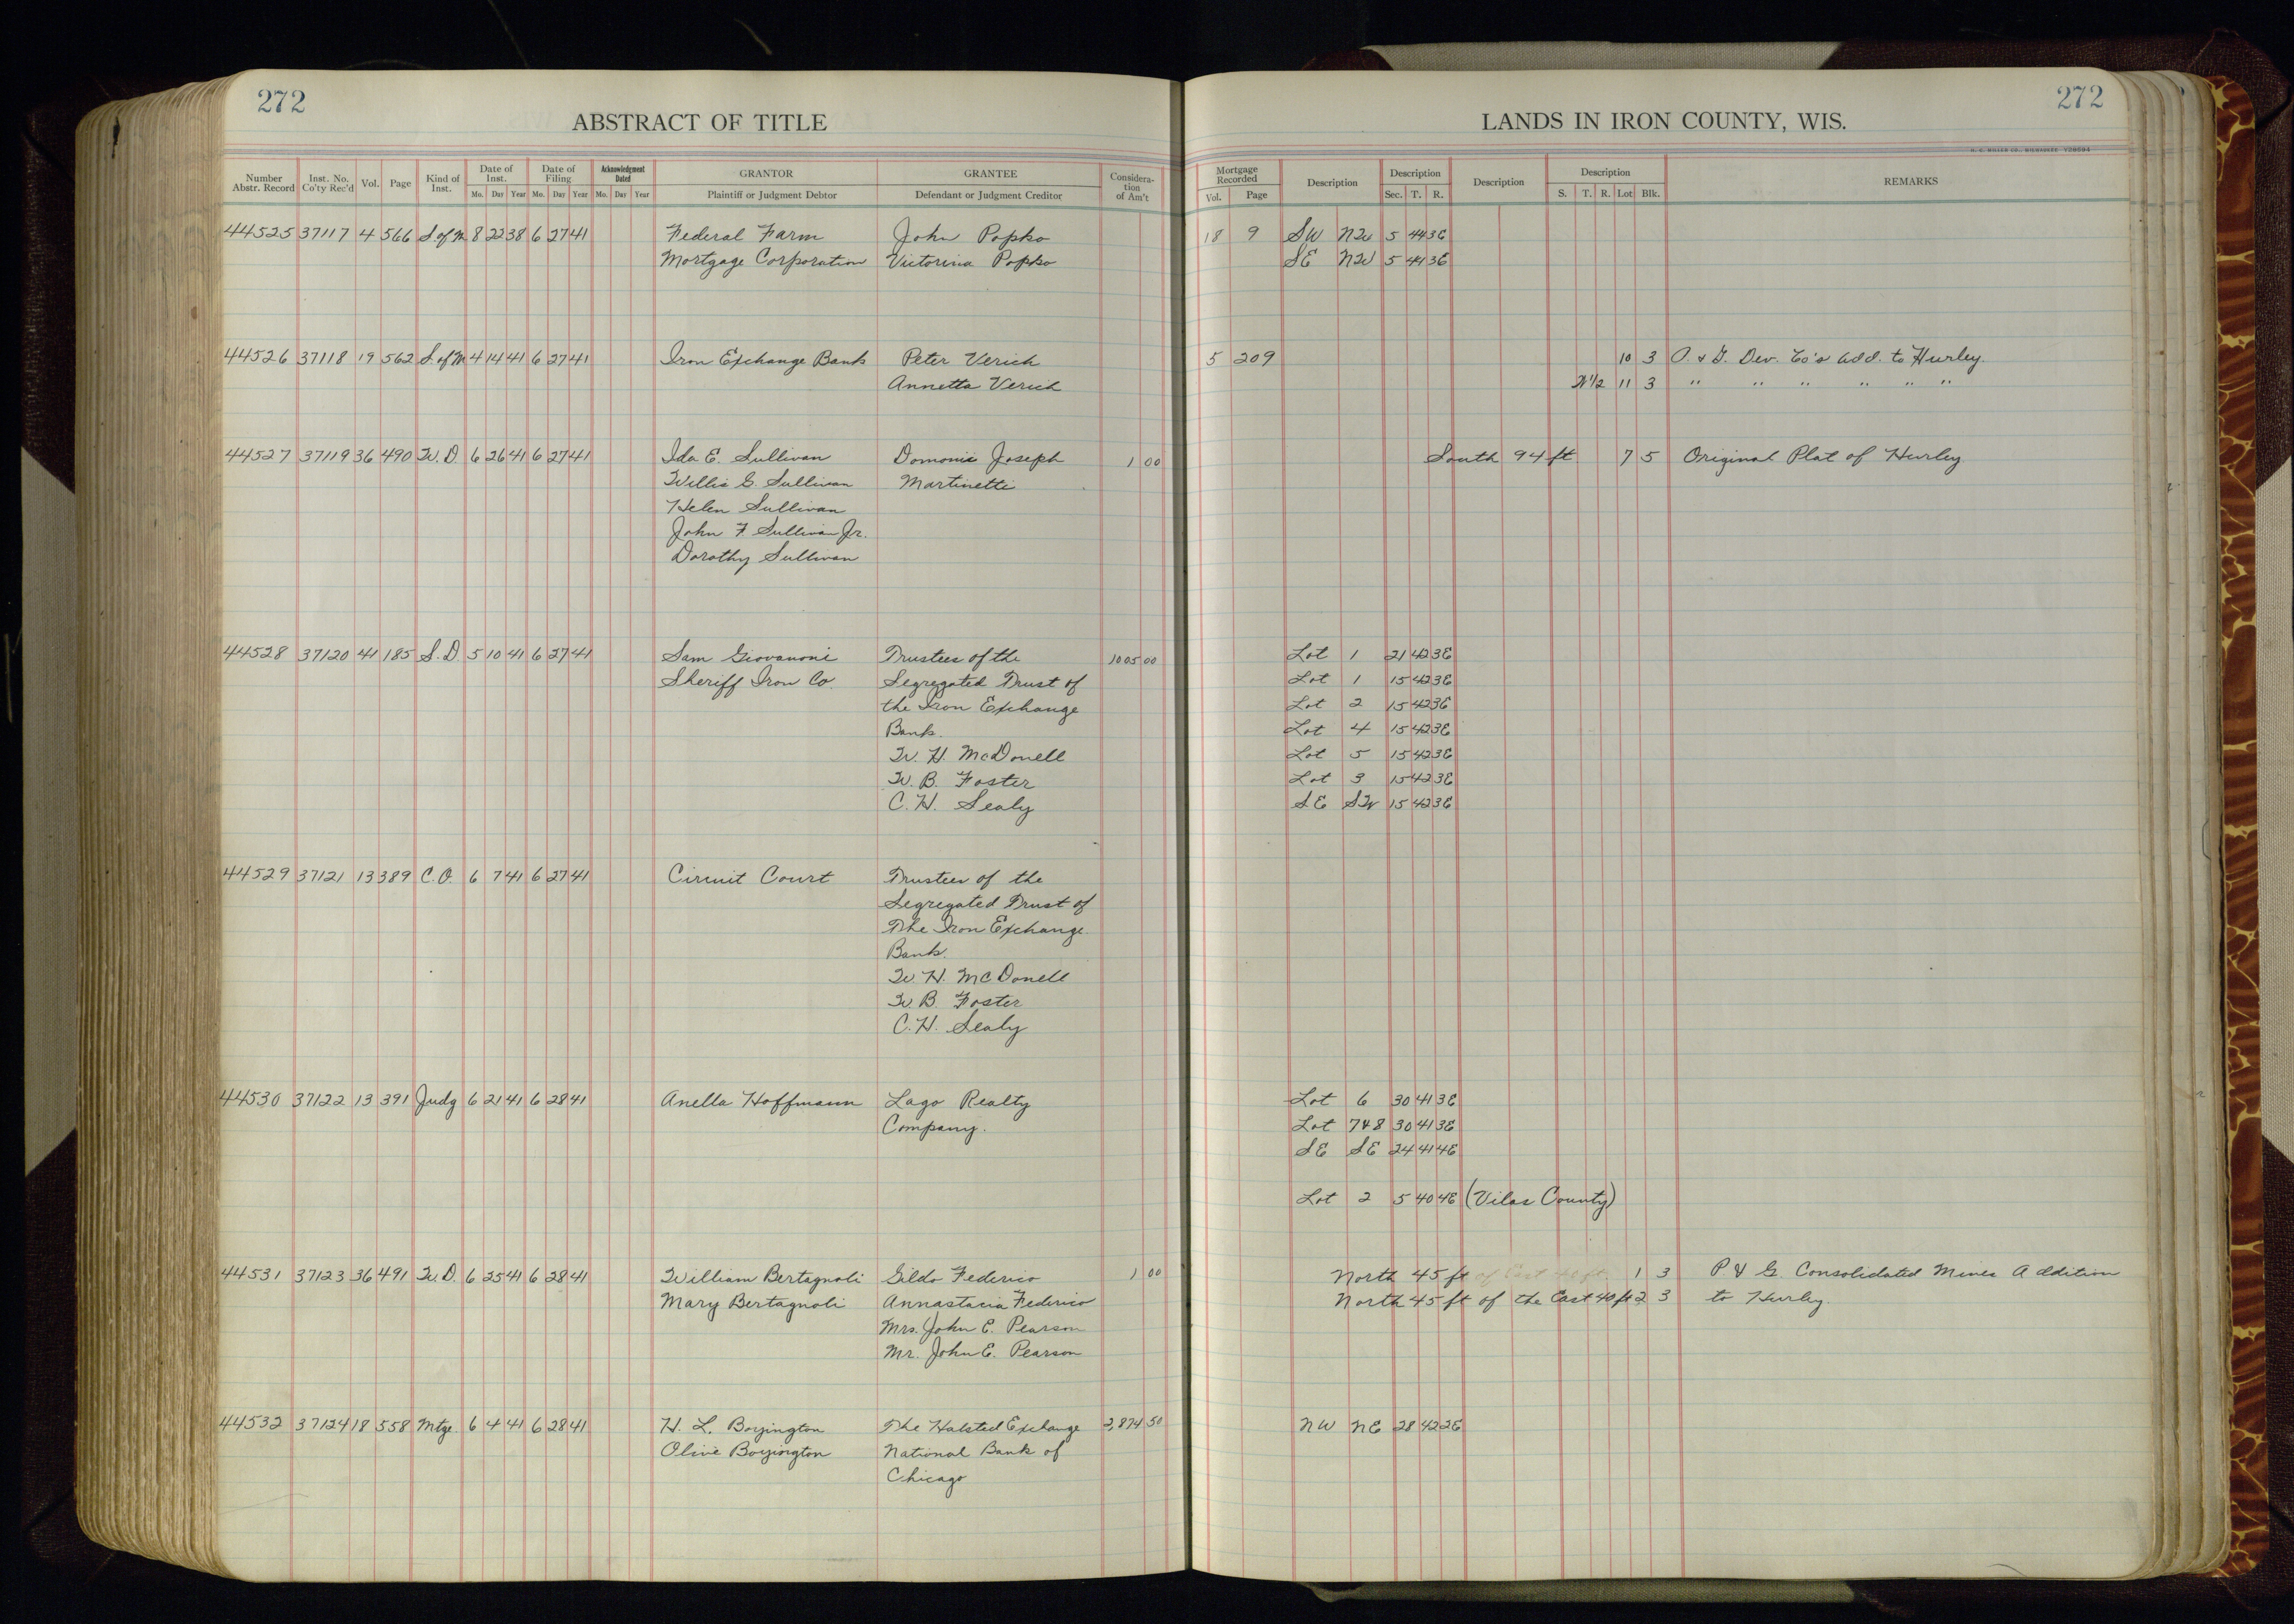 272
ABSTRACT OF TITLE
Number Abstr. Record | Inst. No. Co'ty Rec'd | Vol. | Page | Kind of Inst. | Date of Inst. Mo. Day Year | Date of Filing Mo. Day Year | Acknowledgment Dated Mo. Day Year | GRANTOR Plaintiff or Judgment Debtor | GRANTEE Defendant or Judgment Creditor | Consideration of Am't
44525 37117 4 566 S. of M 8 22 38 6 27 41 Federal Farm John Popko
Mortgage Corporation Victorina Popko
44526 37118 19 562 S. of M 4 14 41 6 27 41 Iron Exchange Bank Peter Verich
Annetta Verich
44527 37119 36 490 W. D. 6 26 41 6 27 41 Ida E. Sullivan Domonic Joseph 1 00
Willis G. Sullivan Martinetti
Helen Sullivan
John F Sullivan Jr.
Dorothy Sullivan
44528 37120 41 185 S. D. 5 10 41 6 27 41 Sam Giovanoni Trustees of the 1005 00
Sheriff Iron Co. Segregated Trust of
the Iron Exchange
Bank.
W. H. McDonell
W. B. Foster
C. H. Sealy
44529 37121 13 389 C. O. 6 7 41 6 27 41 Circuit Court Trustees of the
Segregated Trust of
The Iron Exchange
Bank.
W. H. McDonell
W. B. Foster
C. H. Sealy
44530 37122 13 391 Judg 6 21 41 6 28 41 Anella Hoffmann Lago Realty
Company.
44531 37123 36 491 W. D. 6 25 41 6 28 41 William Bertagnoli Gildo Federico 1 00
Mary Bertagnoli Annastacia Federico
Mrs. John E. Pearson
Mr. John E. Pearson
44532 37124 18 558 Mtge. 6 4 41 6 28 41 H. L. Boyington The Halsted Exchange 2,874 50
Olive Boyington National Bank of
Chicago
272
LANDS IN IRON COUNTY, WIS.
H. C. MILLER CO., MILWAUKEE
Mortgage Recorded Vol. Page | Description | Description Sec. T. R. | Description | Description S. T. R. Lot Blk. | REMARKS
18 9 SW NW 5 44 3E
SE NW 5 44 3E
5 209 10 3 O. & G. Dev. Co's Add. to Hurley.
N 1/2 11 3 " " " " " "
South 94 ft 7 5 Original Plat of Hurley
Lot 1 21 42 3E
Lot 1 15 42 3E
Lot 2 15 42 3E
Lot 4 15 42 3E
Lot 5 15 42 3E
Lot 3 15 42 3E
SE SW 15 42 3E
Lot 6 30 41 3E
Lot 7 & 8 30 41 3E
SE SE 24 41 4E
Lot 2 5 40 4E (Vilas County)
North 45 ft of East 40 ft 1 3 P. & G. Consolidated Mines Addition
North 45 ft of the East 40 ft 2 3 to Hurley.
NW NE 28 42 2E